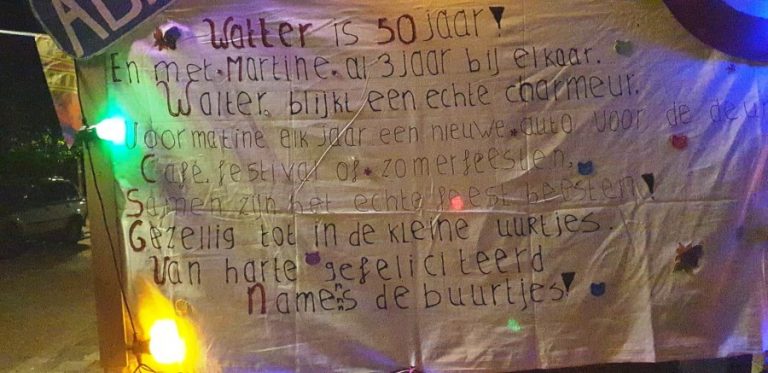 AB
Walter is 50 jaar!
En met Martine al 3 jaar bij elkaar.
Walter blijkt een echte charmeur.
Voor matine elk jaar een nieuwe auto voor de deur
Café, festival of zomerfeesten,
Samen zijn het echte feest beesten!
Gezellig tot in de kleine uurtjes.
Van harte gefeliciteerd
Namens de buurtjes!